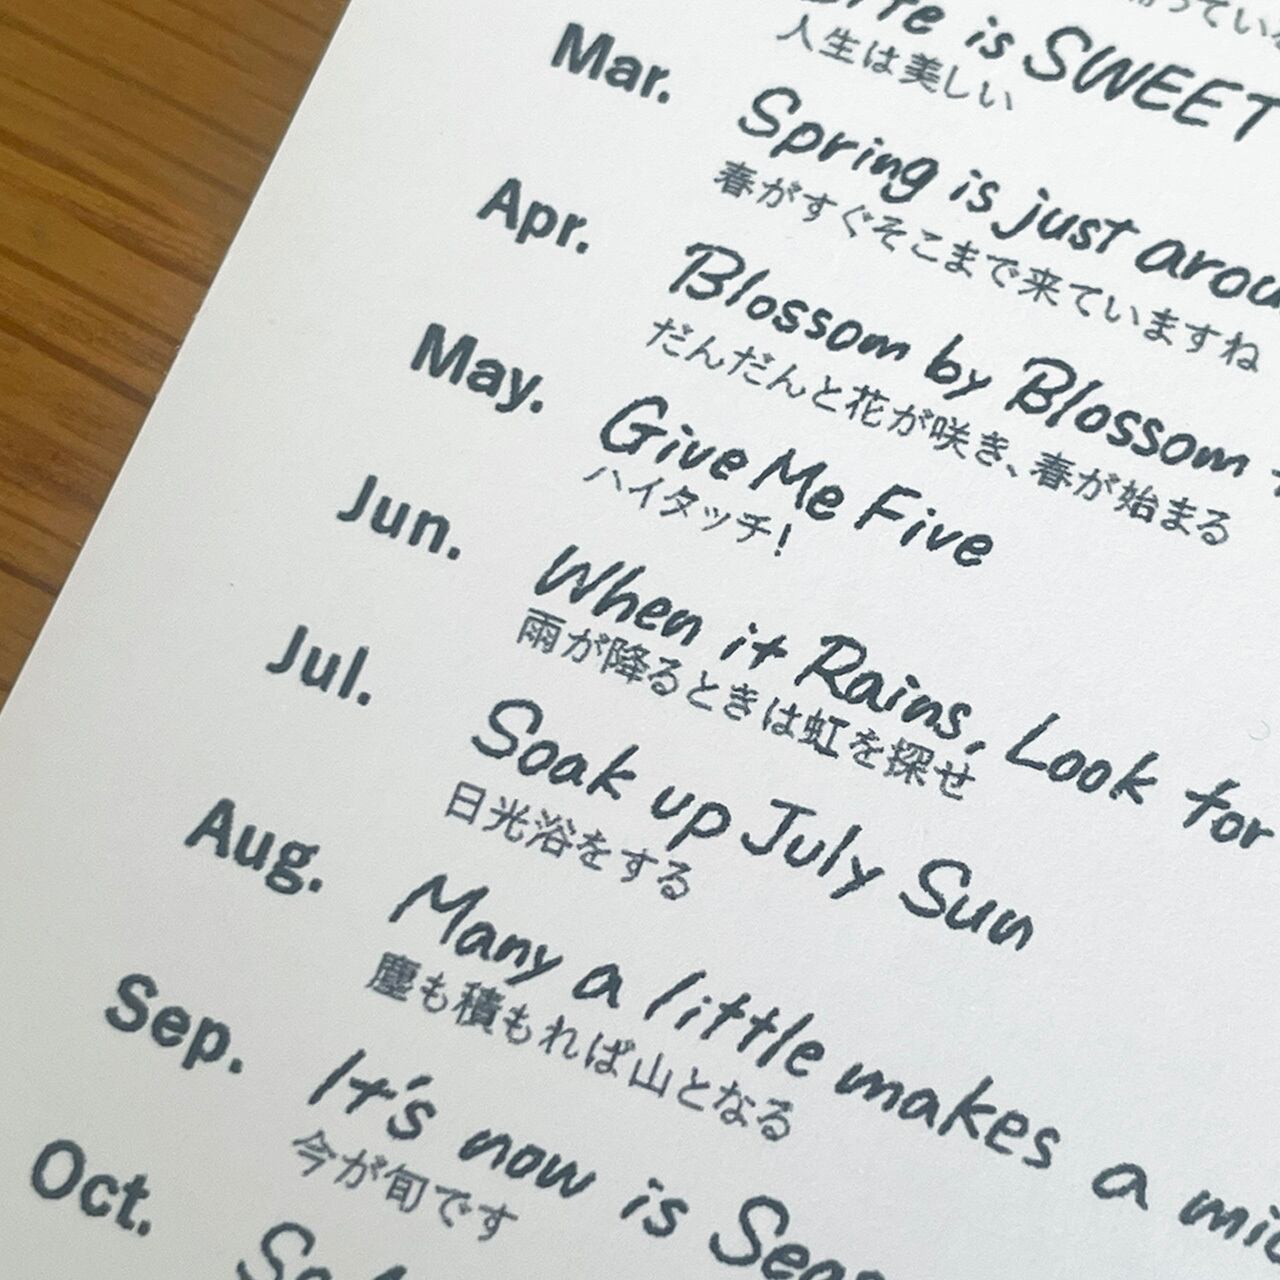 is SWEET
人生は美しい
Mar.
Spring is just
春がすぐそこまで来ていますね
Apr.
Blossom by Blossom
だんだんと花が咲き、春が始まる
May.
Give Me Five
ハイタッチ!
Jun.
When it Rains, Look for
雨が降るときは虹を探せ
Jul.
Soak up July Sun
日光浴をする
Aug.
Many a little makes a
塵も積もれば山となる
Sep.
It's now is
今が旬です
Oct.